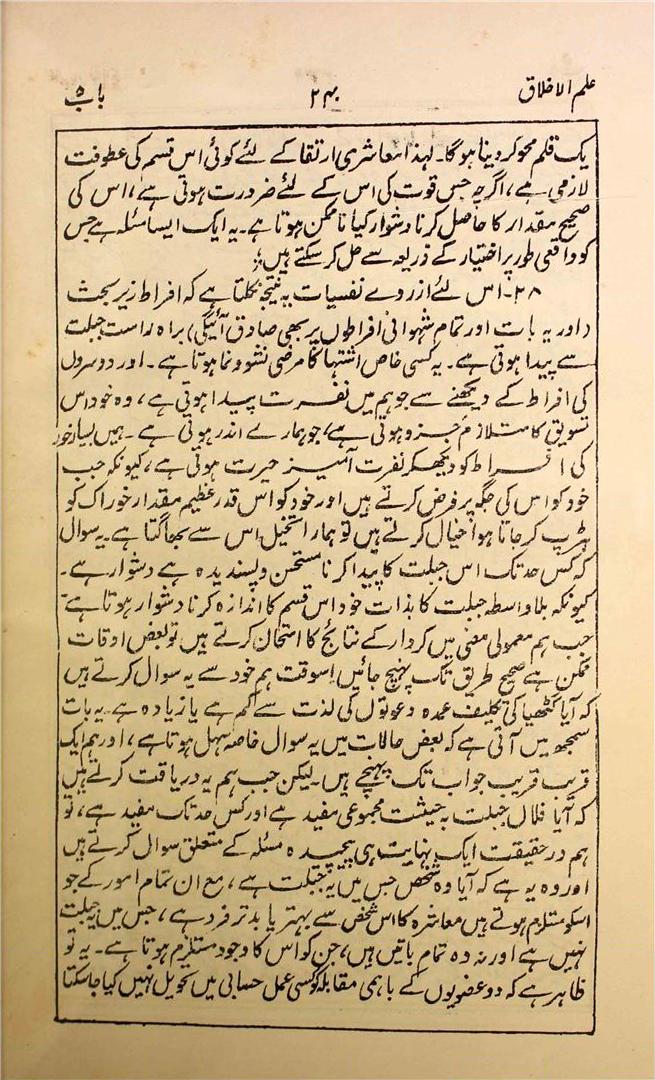 علم الاخلاق ۲۴۰ باب ۵
یک قلم محو کر دینا ہوگا۔ لہذا معاشری ارتقا کے لئے کوئی اس قسم کی عطوفت
لازمی ہے، اگرچہ جس قوت کی اس کے لئے ضرورت ہوتی ہے، اس کی
صحیح مقدار کا حاصل کرنا دشوار کیا ناممکن ہوتا ہے۔ یہ ایک ایسا مسئلہ ہے جس
کو واقعی طور پر اختیار کے ذریعہ سے حل کر سکتے ہیں؛
۲۸۔ اس لئے از روے نفسیات یہ نتیجہ نکلتا ہے کہ افراط زیر بحث
(اور یہ بات اور تمام شہوانی افراطوں پر بھی صادق آئیگی) براہ راست جبلت
سے پیدا ہوتی ہے۔ یہ کسی خاص اشتہا کا مرضی نشو و نما ہوتا ہے۔ اور دوسروں
کی افراط کے دیکھنے سے جو ہم میں نفرت پیدا ہوتی ہے، وہ خود اس
تسویق کا متلازم جزو ہوتی ہے، جو ہمارے اندر ہوتی ہے۔ ہمیں بسیار خور
کی افراط کو دیکھکر نفرت آمیز حیرت ہوتی ہے، کیونکہ جب
خود کو اس کی جگہ پر فرض کرتے ہیں اور خود کو اس قدر عظیم مقدار خوراک کو
ہڑپ کر جاتا ہوا خیال کرتے ہیں تو ہمارا تخیل اس سے بھاگتا ہے۔ یہ سوال
کہ کس حد تک اس جبلت کا پیدا کرنا مستحسن و پسندیدہ ہے دشوار ہے۔
کیونکہ بلا واسطہ جبلت کا بذات خود اس قسم کا اندازہ کرنا دشوار ہوتا ہے
جب ہم معمولی معنی میں کردار کے نتائج کا امتحان کرتے ہیں تو بعض اوقات
ممکن ہے صحیح طریق تک پہنچ جائیں اسوقت ہم خود سے یہ سوال کرتے ہیں
کہ آیا گٹھیا کی تکلیف عمدہ دعوتوں کی لذت سے کم ہے یا زیادہ ہے۔ یہ بات
سمجھ میں آتی ہے کہ بعض حالات میں یہ سوال خاصہ سہل ہوتا ہے، اور ہم ایک
قریب قریب جواب تک پہنچے ہیں۔ لیکن جب ہم یہ دریافت کرتے ہیں
کہ آیا فلاں جبلت بہ حیثیت مجموعی مفید ہے اور کس حد تک مفید ہے، تو
ہم در حقیقت ایک نہایت ہی پیچیدہ مسئلہ کے متعلق سوال کرتے ہیں
اور وہ یہ ہے کہ آیا وہ شخص جس میں یہ جبلت ہے، مع ان تمام امور کے جو
اسکو مستلزم ہوتے ہیں معاشرہ کا اس شخص سے بہتر یا بدتر فرد ہے، جس میں یہ جبلت
نہیں ہے اور نہ وہ تمام باتیں ہیں، جن کو اس کا وجود مستلزم ہوتا ہے۔ یہ تو
ظاہر ہے کہ دو عضویوں کے باہمی مقابلہ کو کسی عمل حسابی میں تحویل نہیں کیا جا سکتا